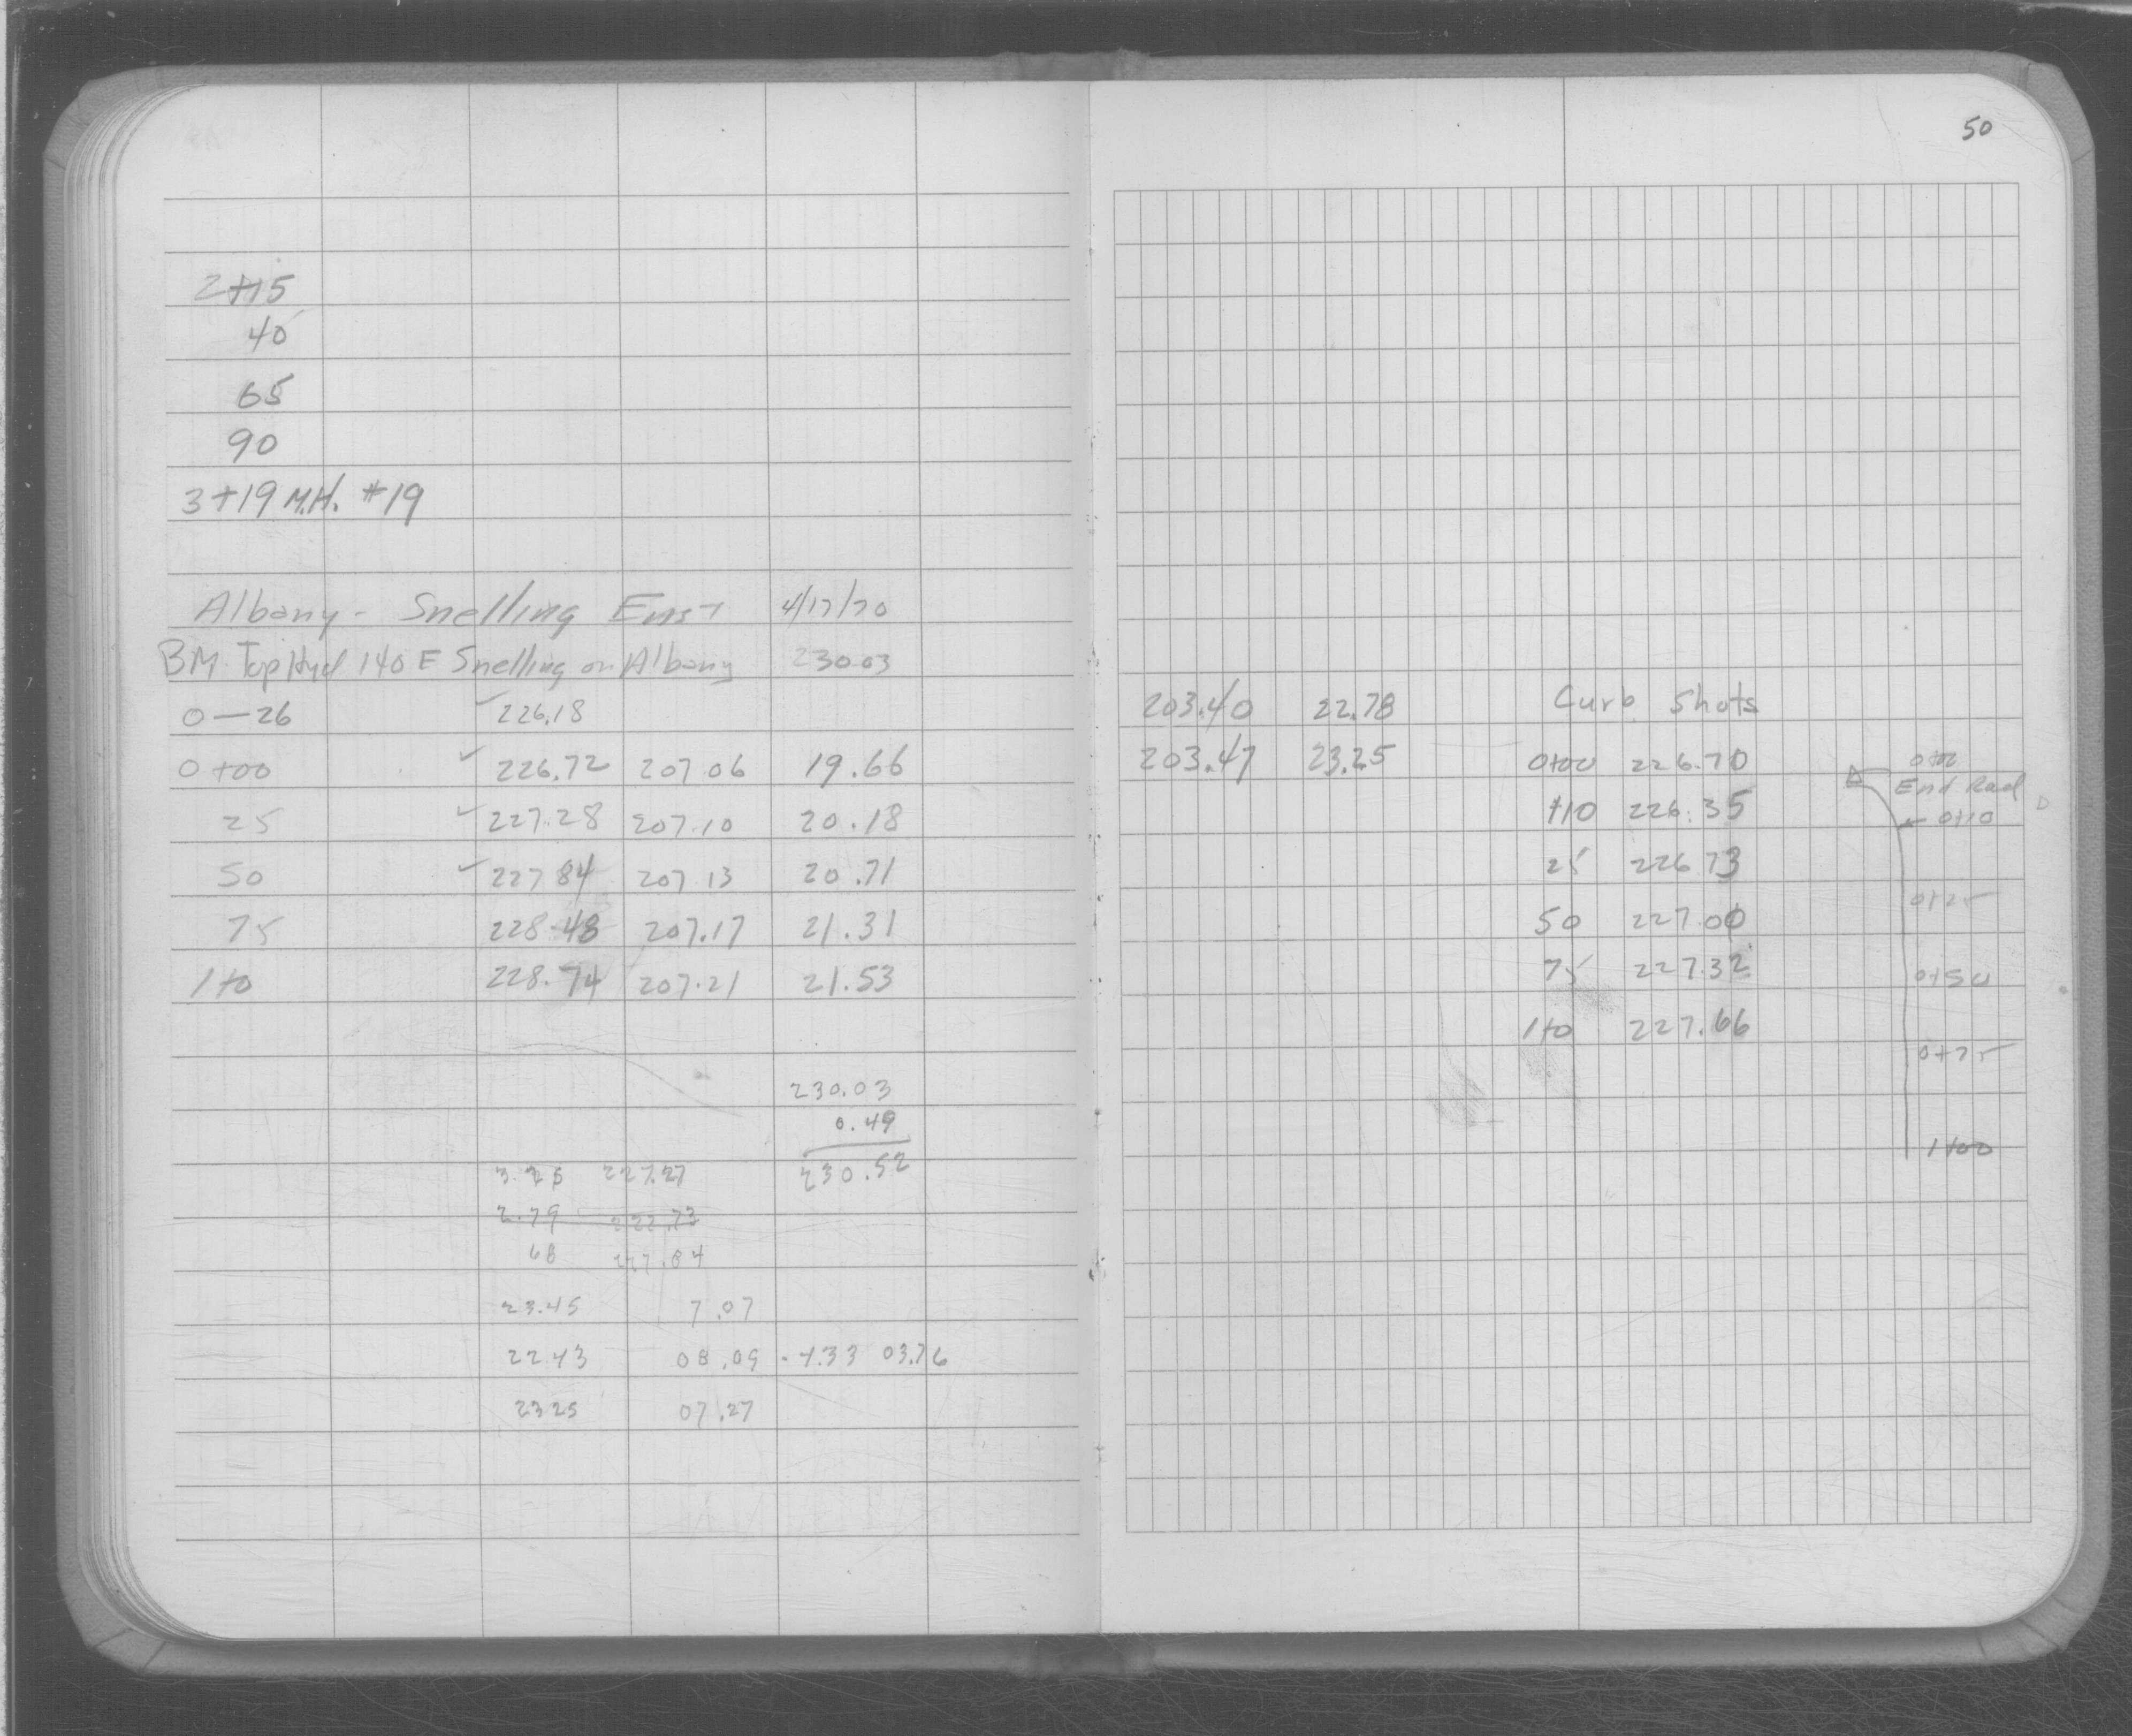 2+15
40
65
90
3+19 M.H. #19
Albany - Snelling East 4/17/70
BM. Top Hyd 140 E Snelling on Albany 230.03
0-26 ✓226.18
0+00 ✓ 226.72 207.06 19.66
25 ✓227.28 207.10 20.18
50 ✓227.84 207.13 20.71
75 228.48 207.17 21.31
1+0 228.74 207.21 21.53
230.03
0.49
230.52
3.25 227.27
2.79 222.73
68 227.84
23.45 7.07
22.43 08.09 -4.33 03.76
23 25 07.27
50
203.40 22.78 Curb Shots
203.47 23.25 0+00 226.70
+10 226.35
25 226.73
50 227.00
75 227.32
1+0 227.66
0+00
End Rad
0+10
0+25
0+50
0+75
1+00